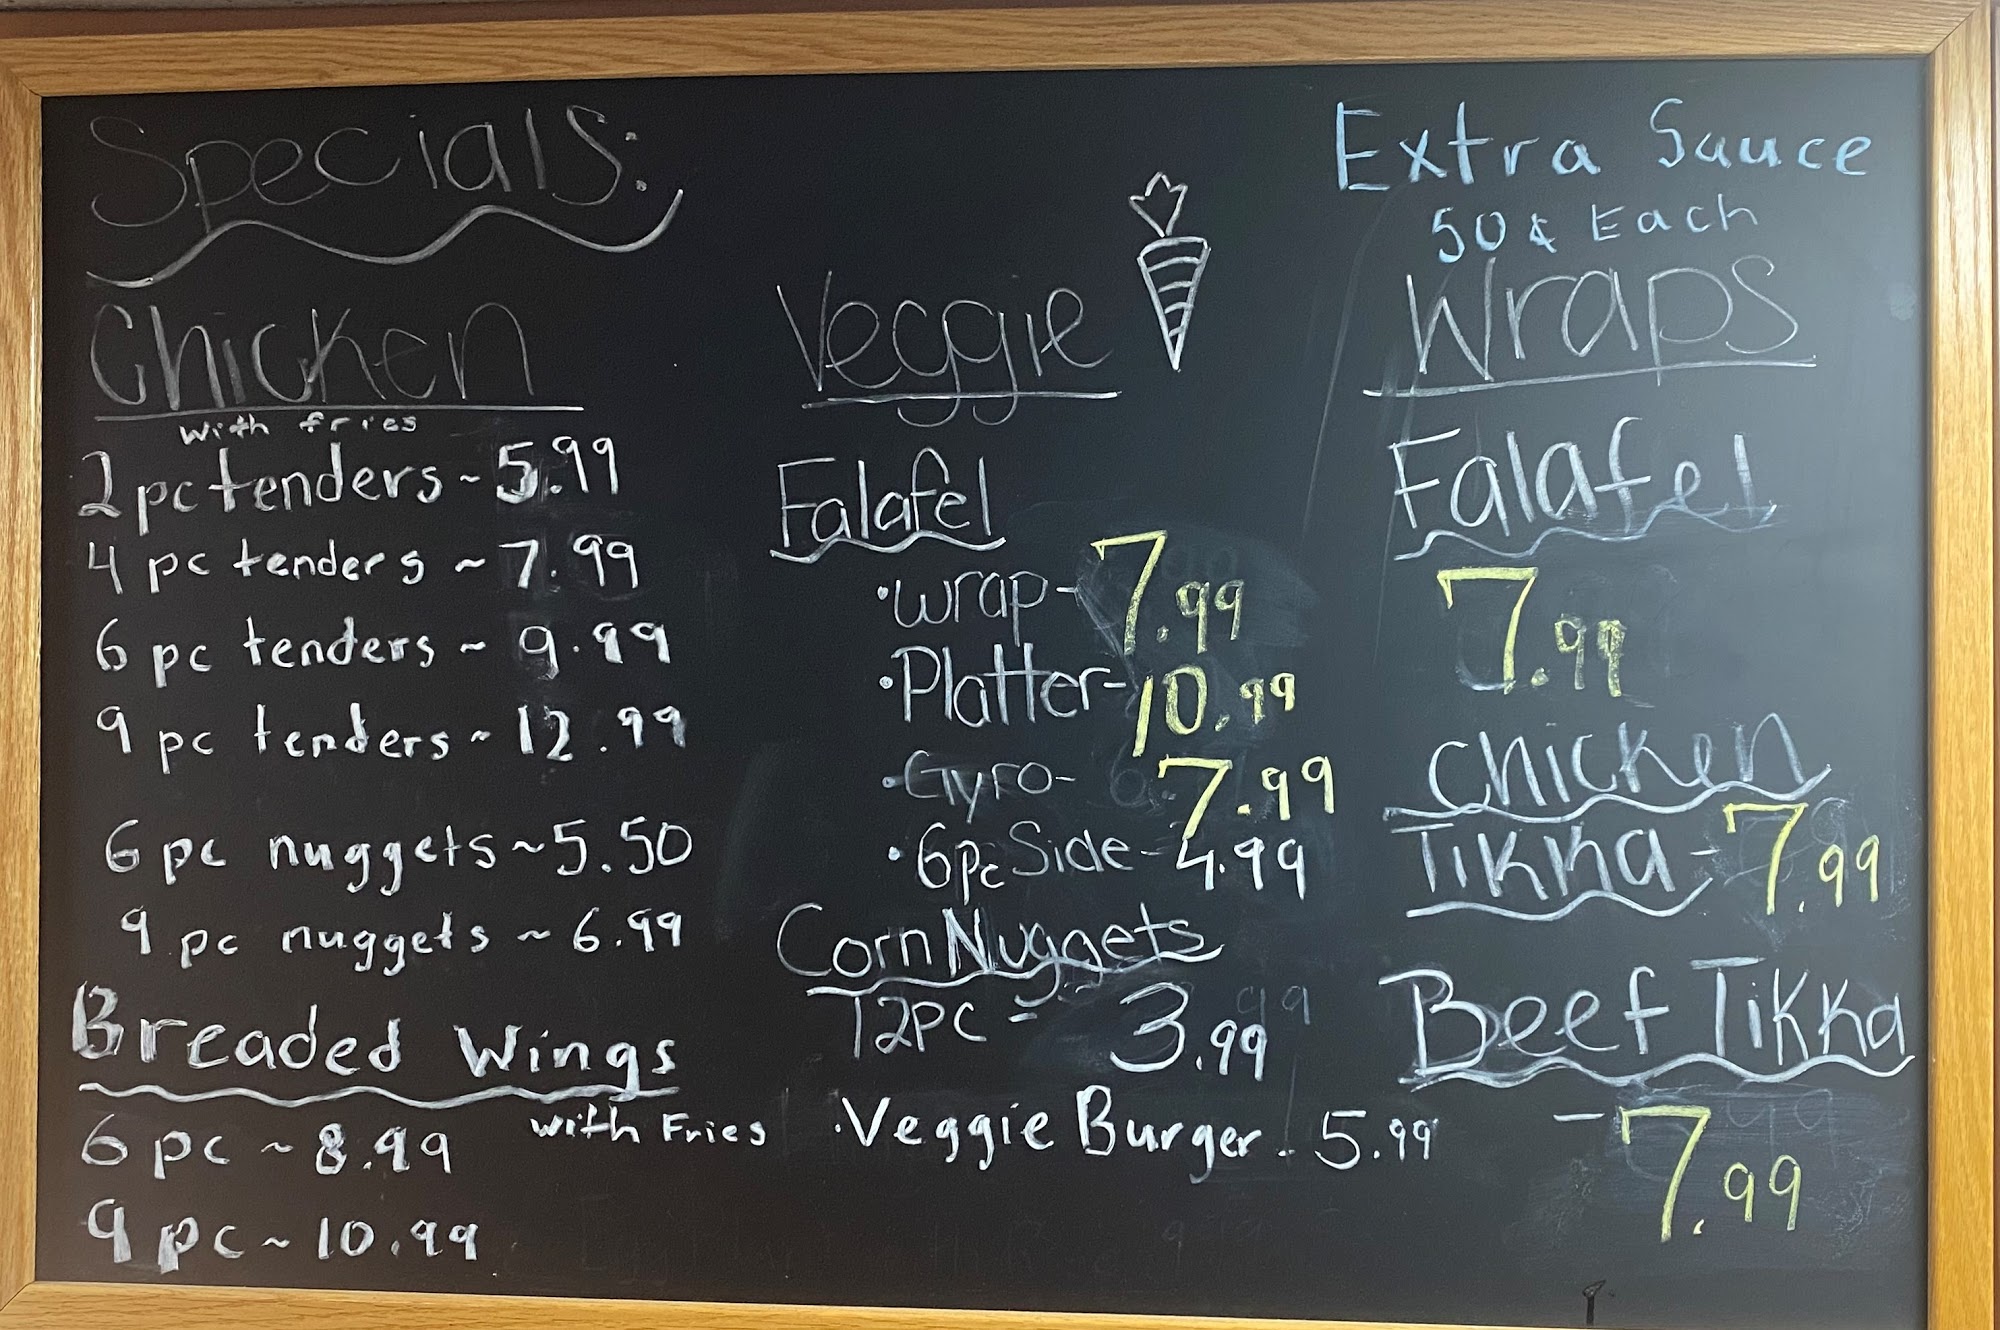 Specials:
Chicken
with fries
2 pc tenders ~ 5.99
4 pc tenders ~ 7.99
6 pc tenders ~ 9.99
9 pc tenders ~ 12.99
6 pc nuggets ~ 5.50
9 pc nuggets ~ 6.99
Breaded Wings
with Fries
6 pc ~ 8.99
9 pc ~ 10.99
Veggie
Falafel
• wrap - 7.99
• Platter - 10.99
• Gyro - 7.99
• 6pc Side - 4.99
Corn Nuggets
12pc - 3.99
• Veggie Burger - 5.99
Extra Sauce
50¢ Each
Wraps
Falafel
7.99
Chicken
Tikka - 7.99
Beef Tikka
- 7.99